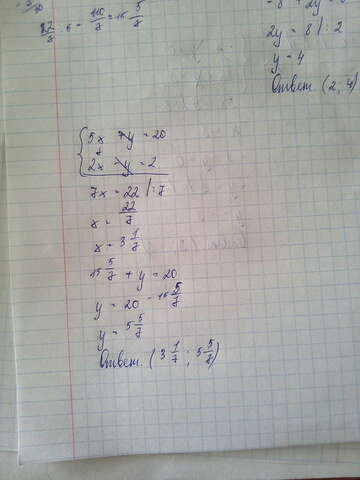 22/7 · 5 = 110/7 = 15 5/7
2y = 8 |: 2
y = 4
Ответ. (2; 4)
5x + y = 20
2x - y = 2
7x = 22 |:7
x = 22/7
x = 3 1/7
15 5/7 + y = 20
y = 20 - 15 5/7
y = 5 5/7
Ответ. (3 1/7 ; 5 5/7)